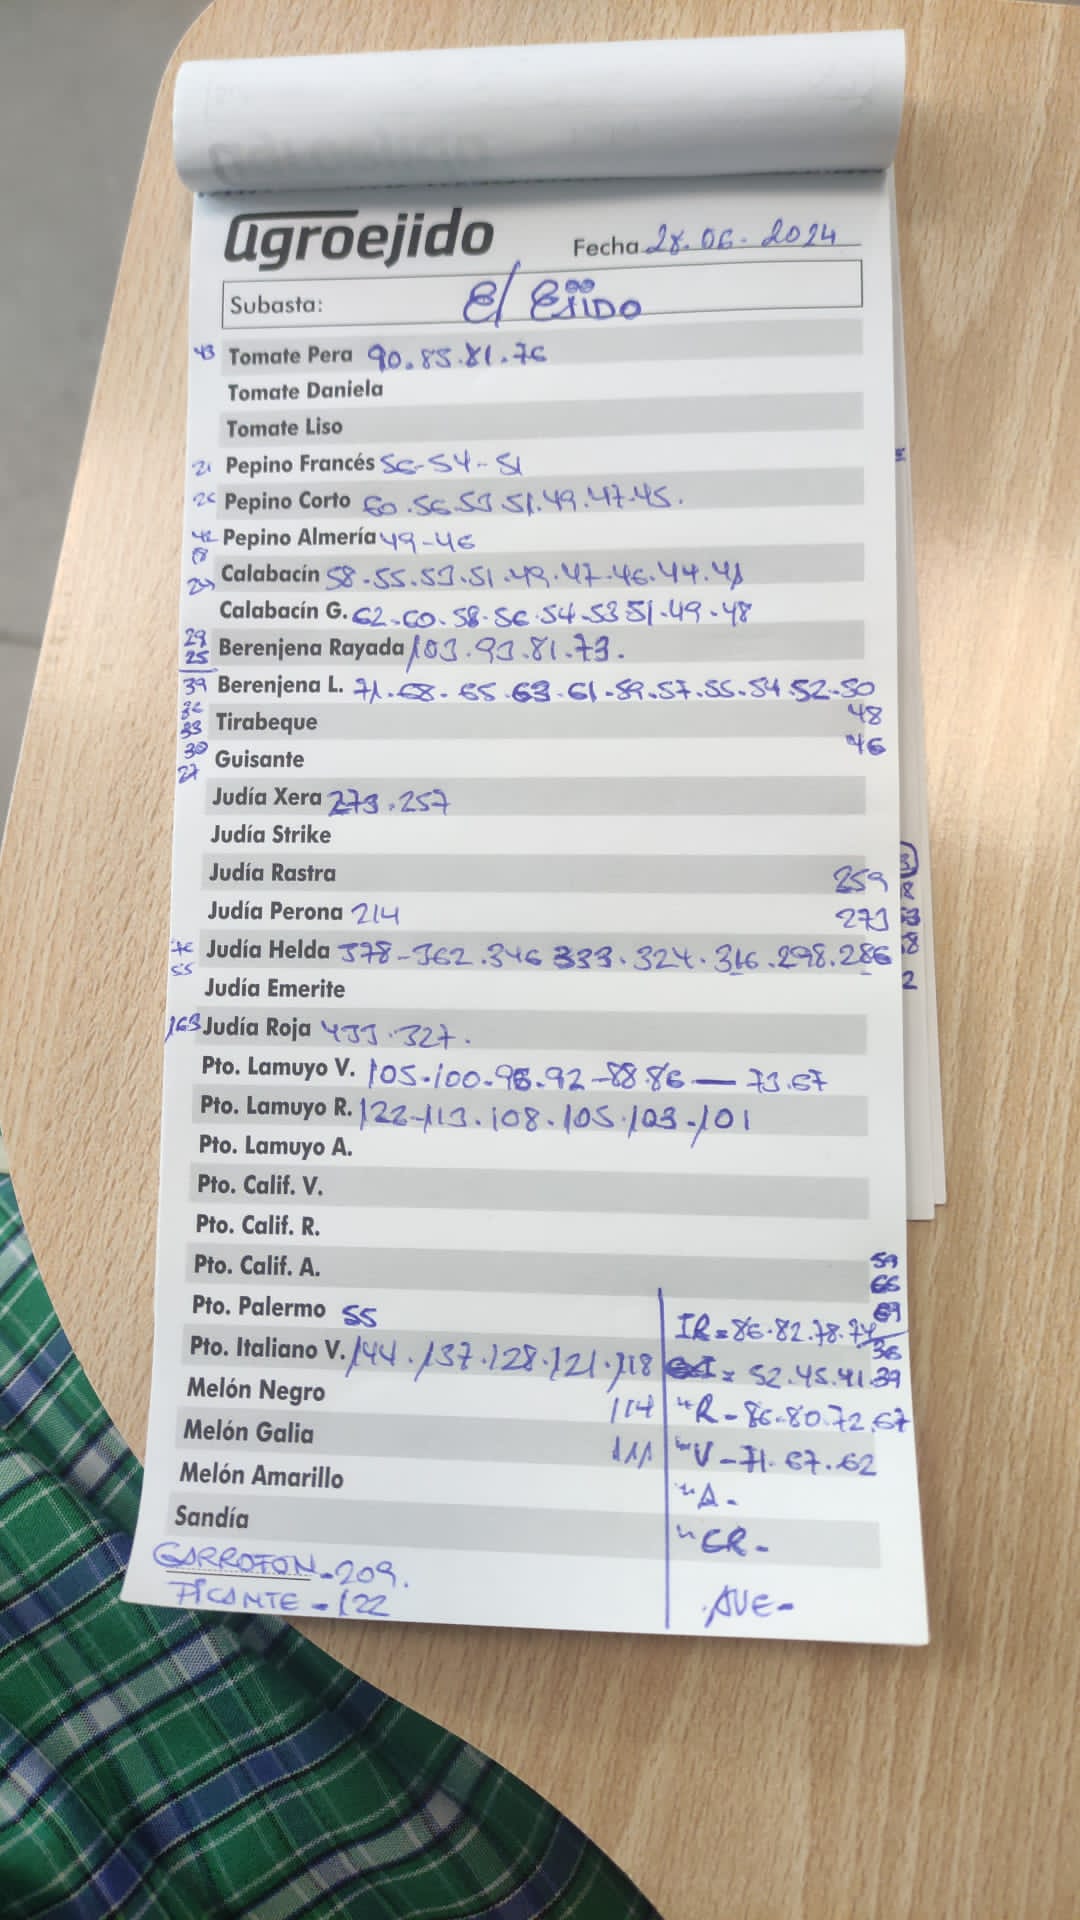 agroejido
Fecha 28.06.2024
Subasta: El Ejido
43 Tomate Pera 90.85.81.76
Tomate Daniela
Tomate Liso
21 Pepino Francés 56-54-51
26 Pepino Corto 60.56.53.51.49.47.45.
42 Pepino Almería 49-46
18
24 Calabacín 58.55.53.51.49.47.46.44.41
Calabacín G. 62.60.58.56.54.53 51.49.48
29
25 Berenjena Rayada 103.93.81.73.
39 Berenjena L. 71.68.65.63.61.59.57.55.54.52.50
36
33 Tirabeque 48
30 Guisante 46
27
Judía Xera 273.257
Judía Strike
Judía Rastra 259
Judía Perona 214 273
76 Judía Helda 378-362.346 333.324.316.298.286
55
Judía Emerite
163 Judía Roja 433.327.
Pto. Lamuyo V. 105.100.96.92-88.86 — 73.67
Pto. Lamuyo R. 122-113.108.105.103-101
Pto. Lamuyo A.
Pto. Calif. V.
Pto. Calif. R.
Pto. Calif. A. 59
66
69
Pto. Palermo 55 IR = 86.82.78.74
36
Pto. Italiano V. 144.137.128.121.118 I = 52.45.41.39
Melón Negro 114 "R - 86.80.72.67
Melón Galia 111 "V - 71.67.62
Melón Amarillo "A -
Sandía "CR -
GARROFON - 209.
PICANTE - 122 AVE -